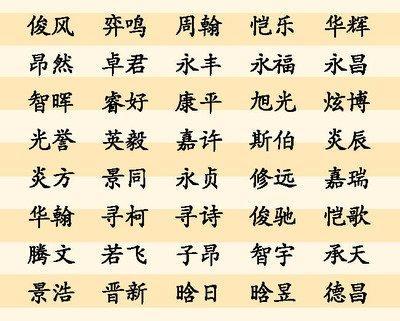 俊风 弈鸣 周翰 恺乐 华辉
昂然 卓君 永丰 永福 永昌
智晖 睿好 康平 旭光 炫博
光誉 英毅 嘉许 斯伯 炎辰
炎方 景同 永贞 修远 嘉瑞
华翰 寻柯 寻诗 俊驰 恺歌
腾文 若飞 子昂 智宇 承天
景浩 晋新 晗日 晗昱 德昌